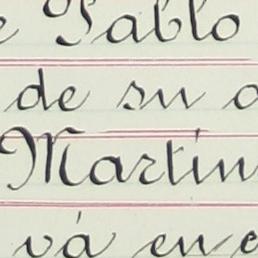 e Pablo
de su
Martin
vá en